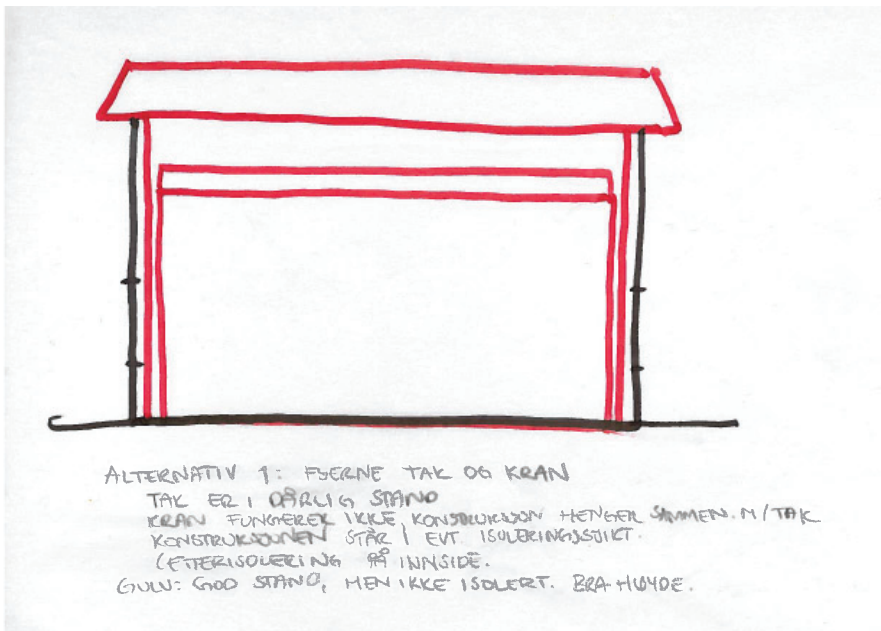 ALTERNATIV 1: FJERNE TAK OG KRAN
TAK ER I DÅRLIG STAND
KRAN FUNGERER IKKE, KONSTRUKSJON HENGER SAMMEN M/TAK
KONSTRUKSJONEN STÅR I EVT. ISOLERINGSSJIKT.
(ETTERISOLERING PÅ INNSIDE.
GULV: GOD STAND, MEN IKKE ISOLERT. BRA HØYDE.